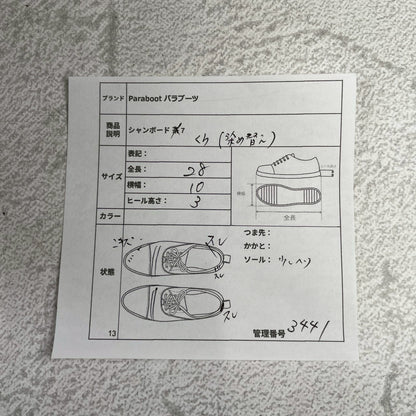 ブランド Paraboot パラブーツ
商品説明 シャンボード 7
くり (染め替え)
サイズ
表記：
全長： 28
横幅： 10
ヒール高さ： 3
横幅
全長
カラー
状態
つま先：
スレ
かかと：
ソール： 少しヘリ
スレ
スレ
13
管理番号 3441